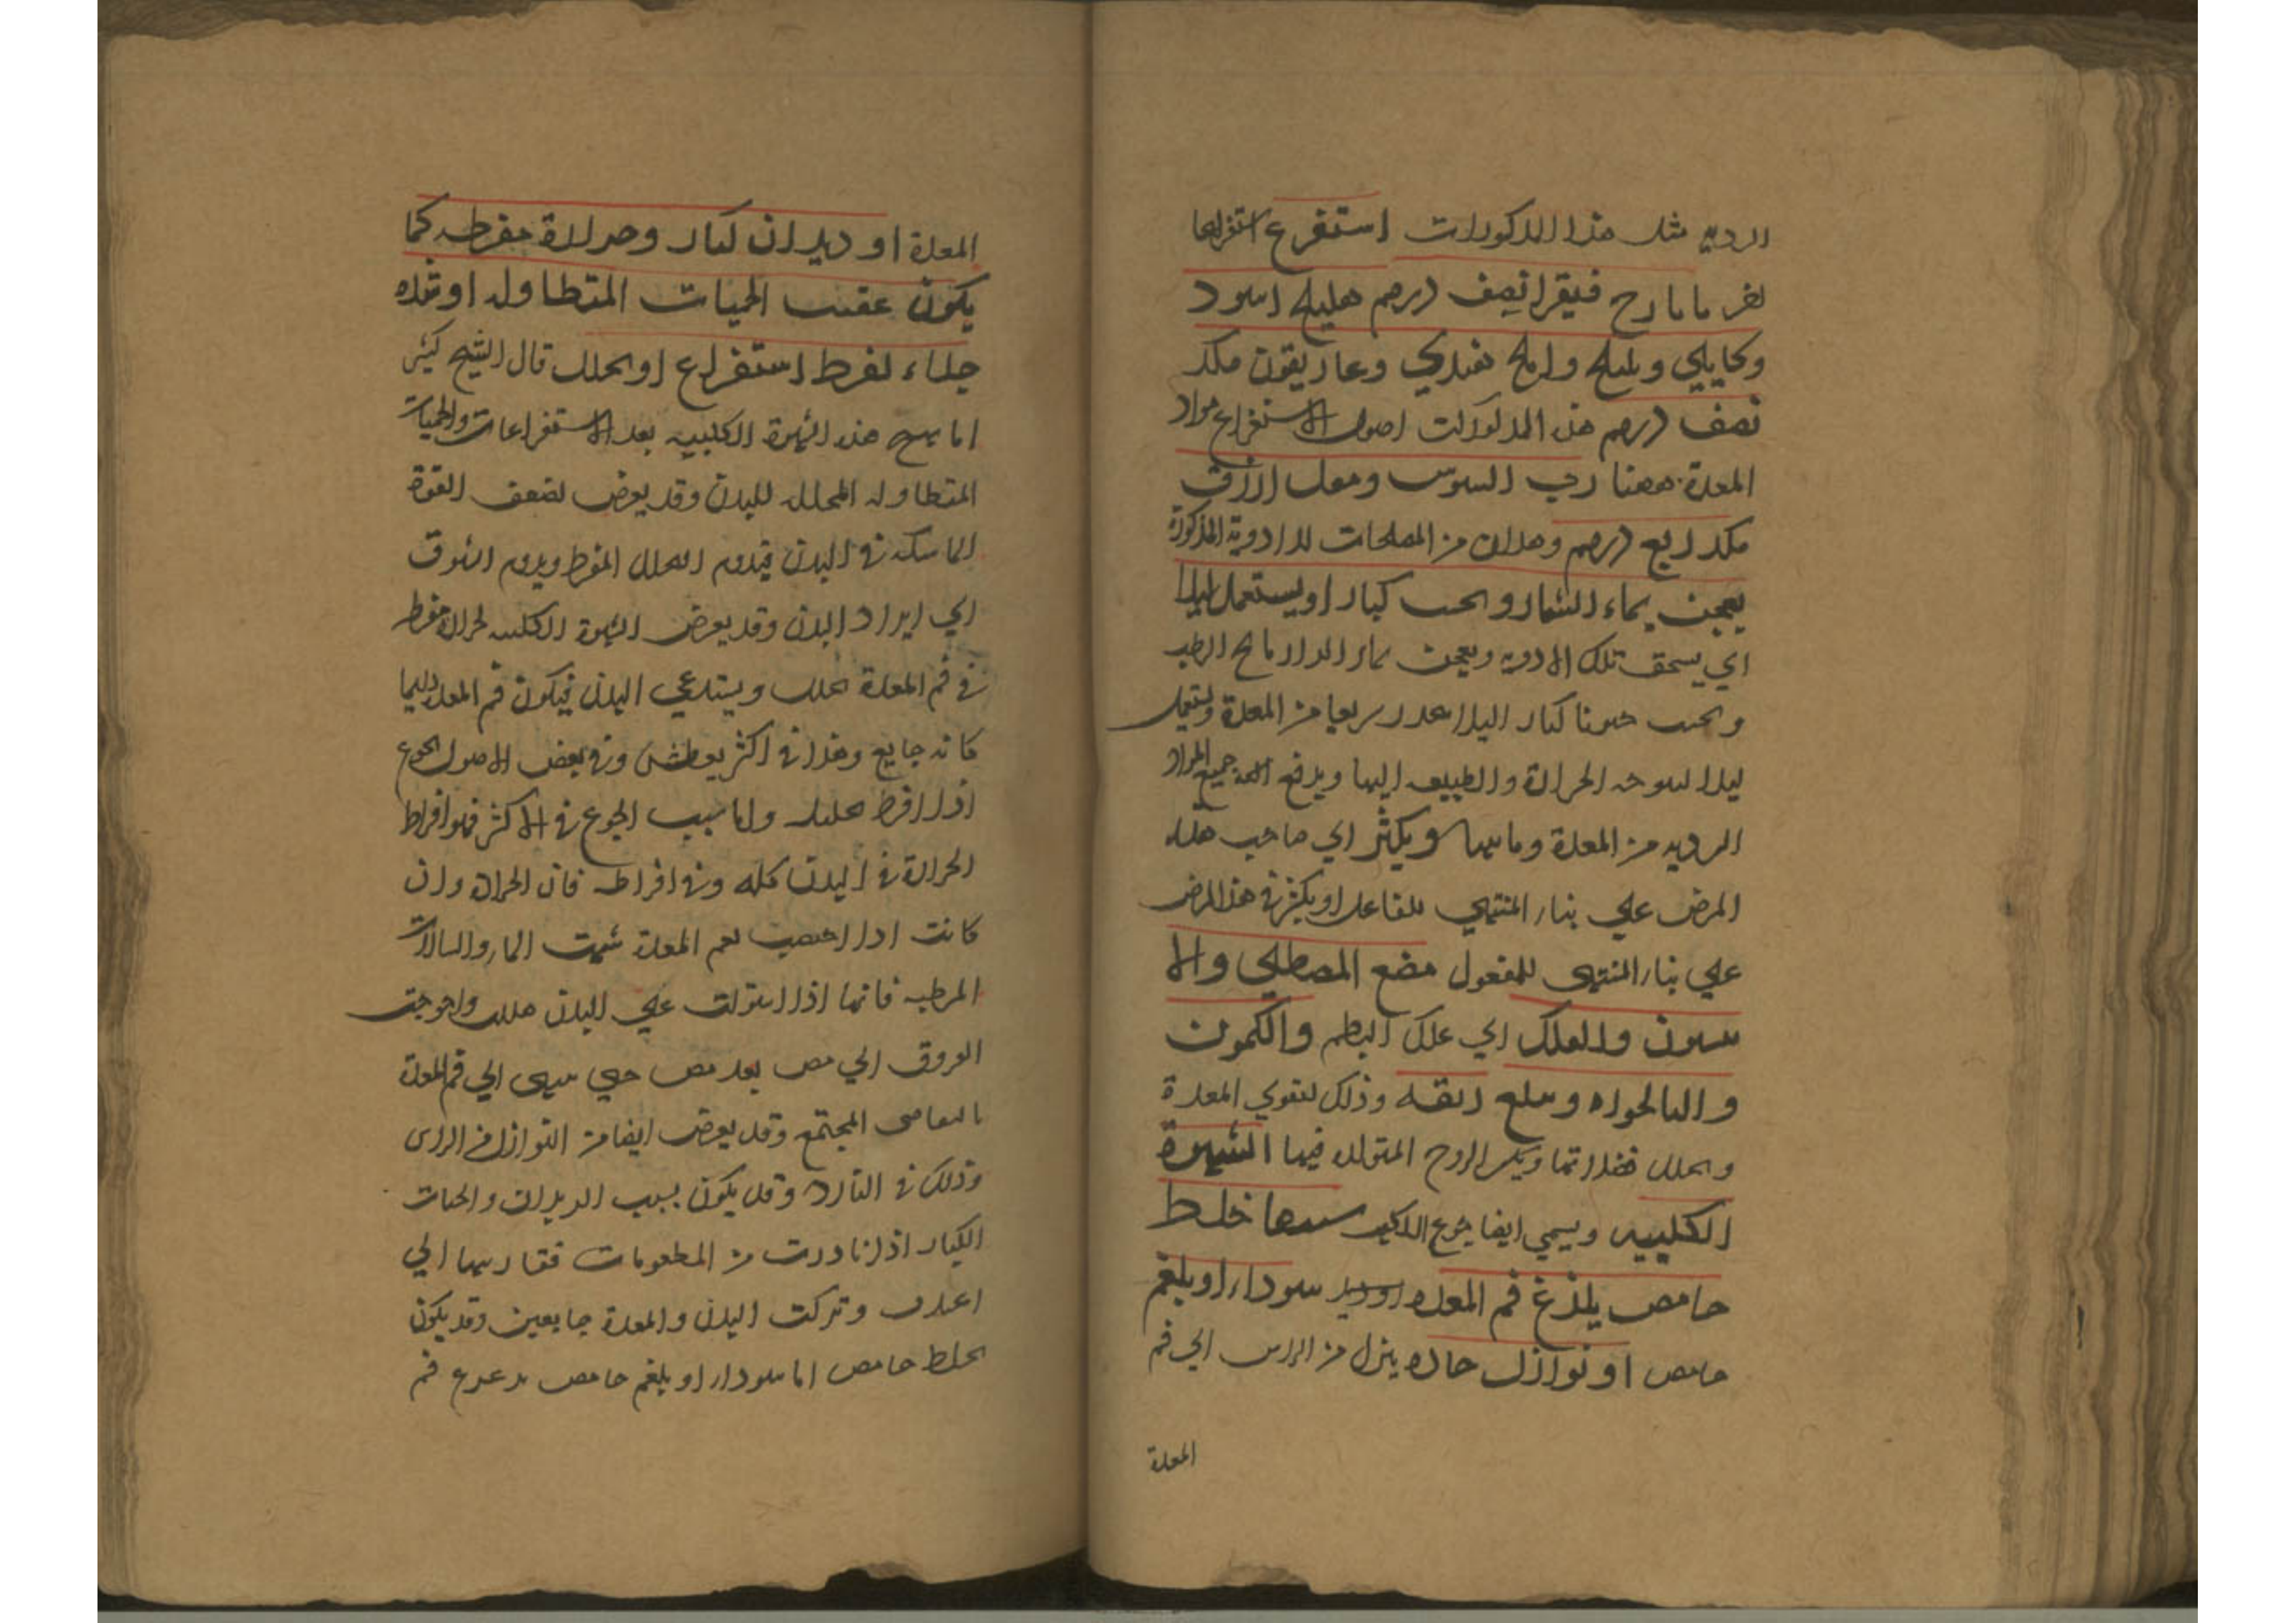 الرديه مثل هذا المذكورات استفرغ استفراغا
فيقرا نصف درهم هليلج اسود
وكابلي وبليلج واملج هندي وغاريقون مكد
نصف درهم هذه المذكورات اصول الاستفراغ مواد
المعدة ههنا رب السوس ومقل ازرق
مكد ربع درهم وهذان من المصلحات للادوية المذكورة
يعجن بماء الشمار ويحبب كبارا ويستعمل ليلا
اي يسحق تلك الادويه ويعجن بماء الرازيانج الرطب
ويحبب حبوبا كبار اليلا ينحدر سريعا من المعدة ويستعمل
ليلا لتوجه الحرارة والطبيعه اليها ويدفع جميع المواد
الرديه من المعدة وما يليها ويكثر اي صاحب هذا
المرض علي بناء المنتهي للفاعل او يكثر في هذا المرض
علي بناء المنتهي للمفعول مضغ المصطكي والا
نيسون والعلك اي علك البطم والكمون
والنانخواه وبلع ريقه وذلك لتقوي المعدة
وتحلل فضلاتها ويكسر الروح المتولده فيها الشهوة
الكلبيه ويسمي ايضا جوع الكلب سببها خلط
حامض يلذغ فم المعده سوداء او بلغم
حامض او نوازل حاده ينزل من الراس الي فم
المعدة
المعدة او ديدان كبار وحرارة مفرطه كما
يكون عقيب الحميات المتطاوله او شده
خلاء لفرط استفراغ او تحلل قال الشيخ كثير
اما يهيج هذه الشهوة الكلبيه بعد الاستفراغات والحميات
المتطاوله المحلله للبدن وقد يعرض لضعف القوة
الماسكه في البدن فيدوم التحلل المفرط ويدوم الشوق
الي ايراد البدن وقد يعرض الشهوة الكلبيه لحرارة مفرطه
في فم المعدة تحلل ويستدعي البدن فيكون فم المعدة دايما
كانه جايع وهذا في اكثر يعطش وفي بعض الاصول الجوع
اذا افرط تحليله واما سبب الجوع في الاكثر فهو افراط
الحرارة في البدن كله وفي افراطه فان الحرارة وان
كانت اذا اختصت بفم المعدة شهت الماء والسيالات
المرطبه فانها اذا استولت علي البدن حللت واحوجت
العروق الي مص بعد مص حتي ينتهي الي فم المعدة
بالتقاضي المجتمع وقد يعرض ايضا من النوازل من الراس
وذلك في النادر وقد يكون بسبب الديدان والحيات
الكبار اذا بادرت من المطعومات ففازت بها الي
اغذيت وتركت البدن والمعدة جايعين وقد يكون
لخلط حامض اما سوداء او بلغم حامض يدغدغ فم